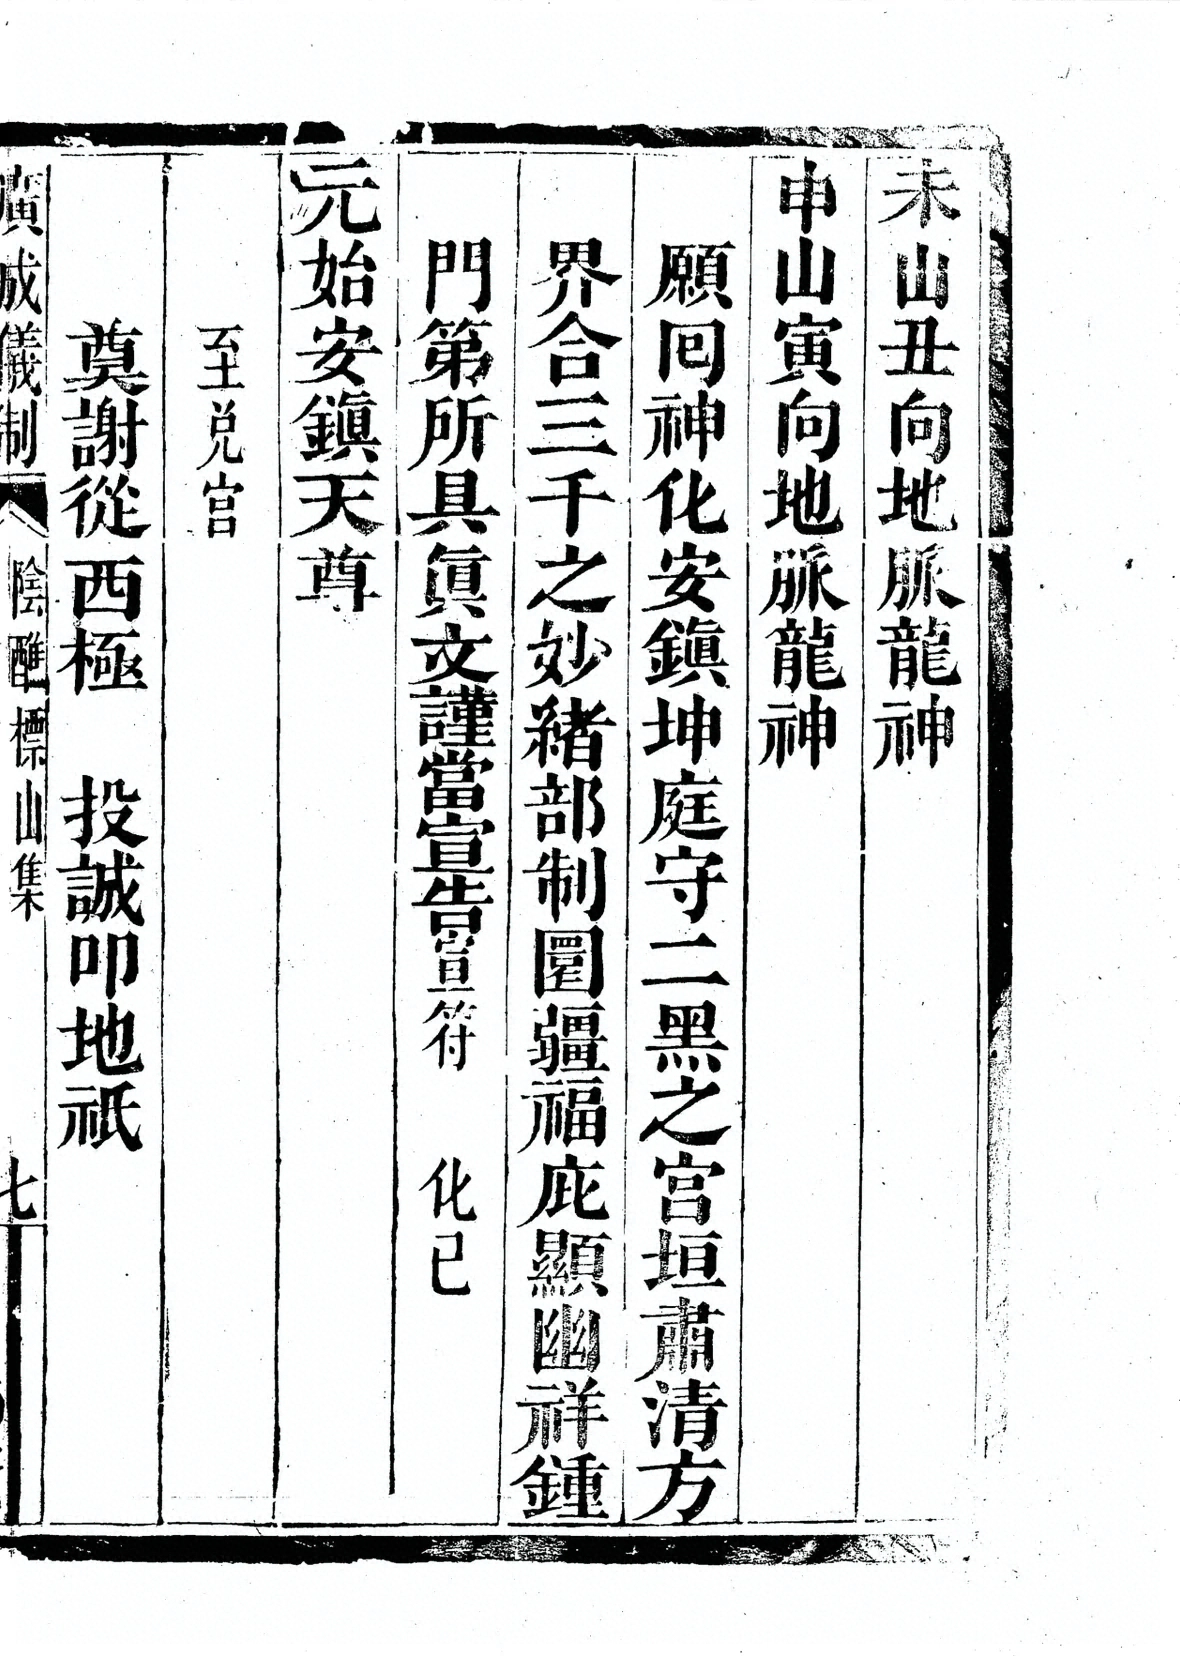 未山丑向地脈龍神
申山寅向地脈龍神
願囘神化安鎭坤庭守二黑之宮垣肅清方
界合三千之妙緒部制圜疆福庇顯幽祥鍾
門第所具眞文謹當宣告宣符 化已
元始安鎭天尊
至兌宮
奠謝從西極 投誠叩地祇
廣成儀制 陰醮標山集 七